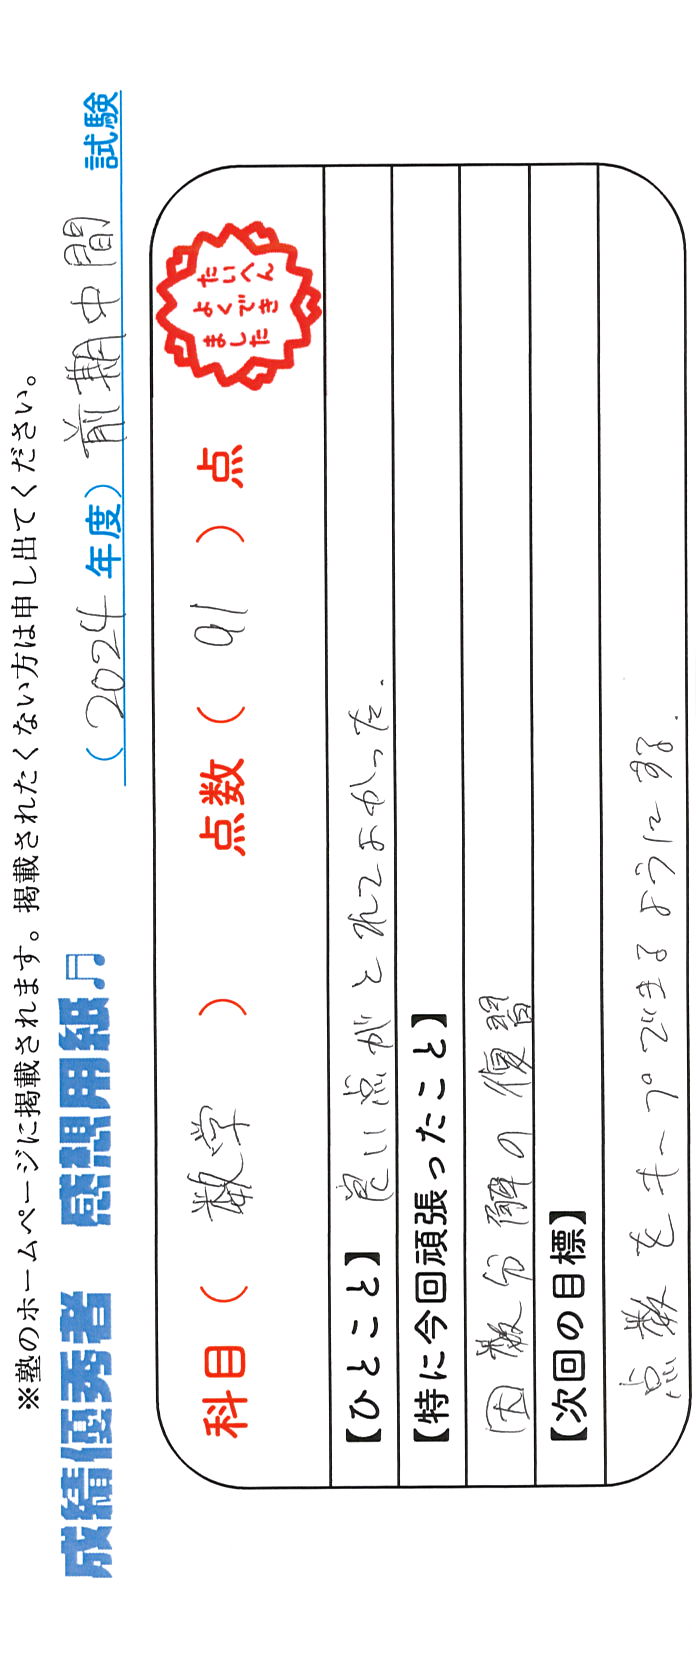 ※塾のホームページに掲載されます。掲載されたくない方は申し出てください。
成績優秀者 感想用紙♫ （2024年度）前期中間 試験
科目（ 数学 ） 点数（ 91 ）点
たいへん
よくでき
ました
【ひとこと】良い点がとれてよかった.
【特に今回頑張ったこと】
因数分解の復習
【次回の目標】
点数をキープできるようにする.